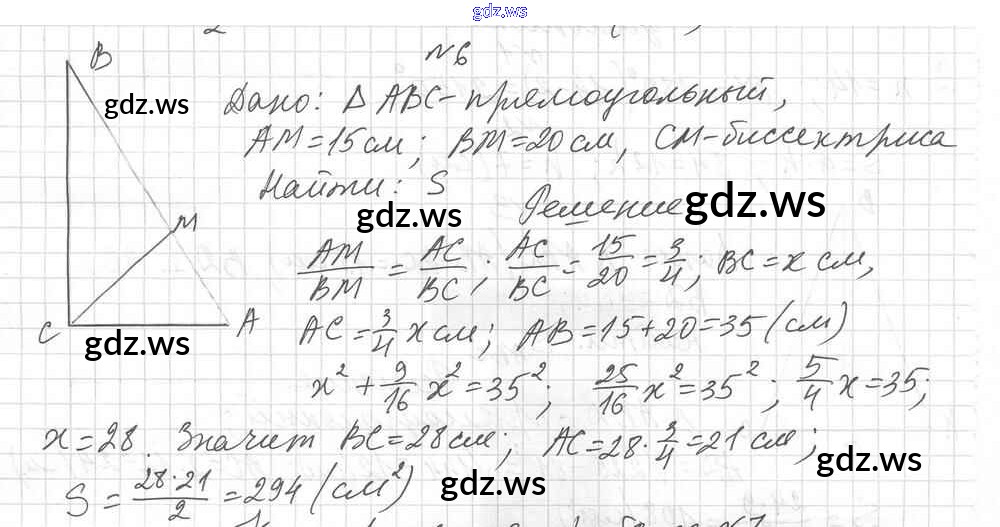 gdz.ws
№6
B
gdz.ws
Дано: △ABC - прямоугольный,
AM = 15 см; BM = 20 см, CM - биссектриса
Найти: S
gdz.ws
Решение
gdz.ws
M
AM/BM = AC/BC; AC/BC = 15/20 = 3/4, BC = x см,
C
A
gdz.ws
AC = 3/4 x см; AB = 15 + 20 = 35 (см)
x² + 9/16 x² = 35²; 25/16 x² = 35²; 5/4 x = 35;
x = 28. Значит BC = 28 см; AC = 28 · 3/4 = 21 см;
gdz.ws
S = 28·21/2 = 294 (см²)
gdz.ws